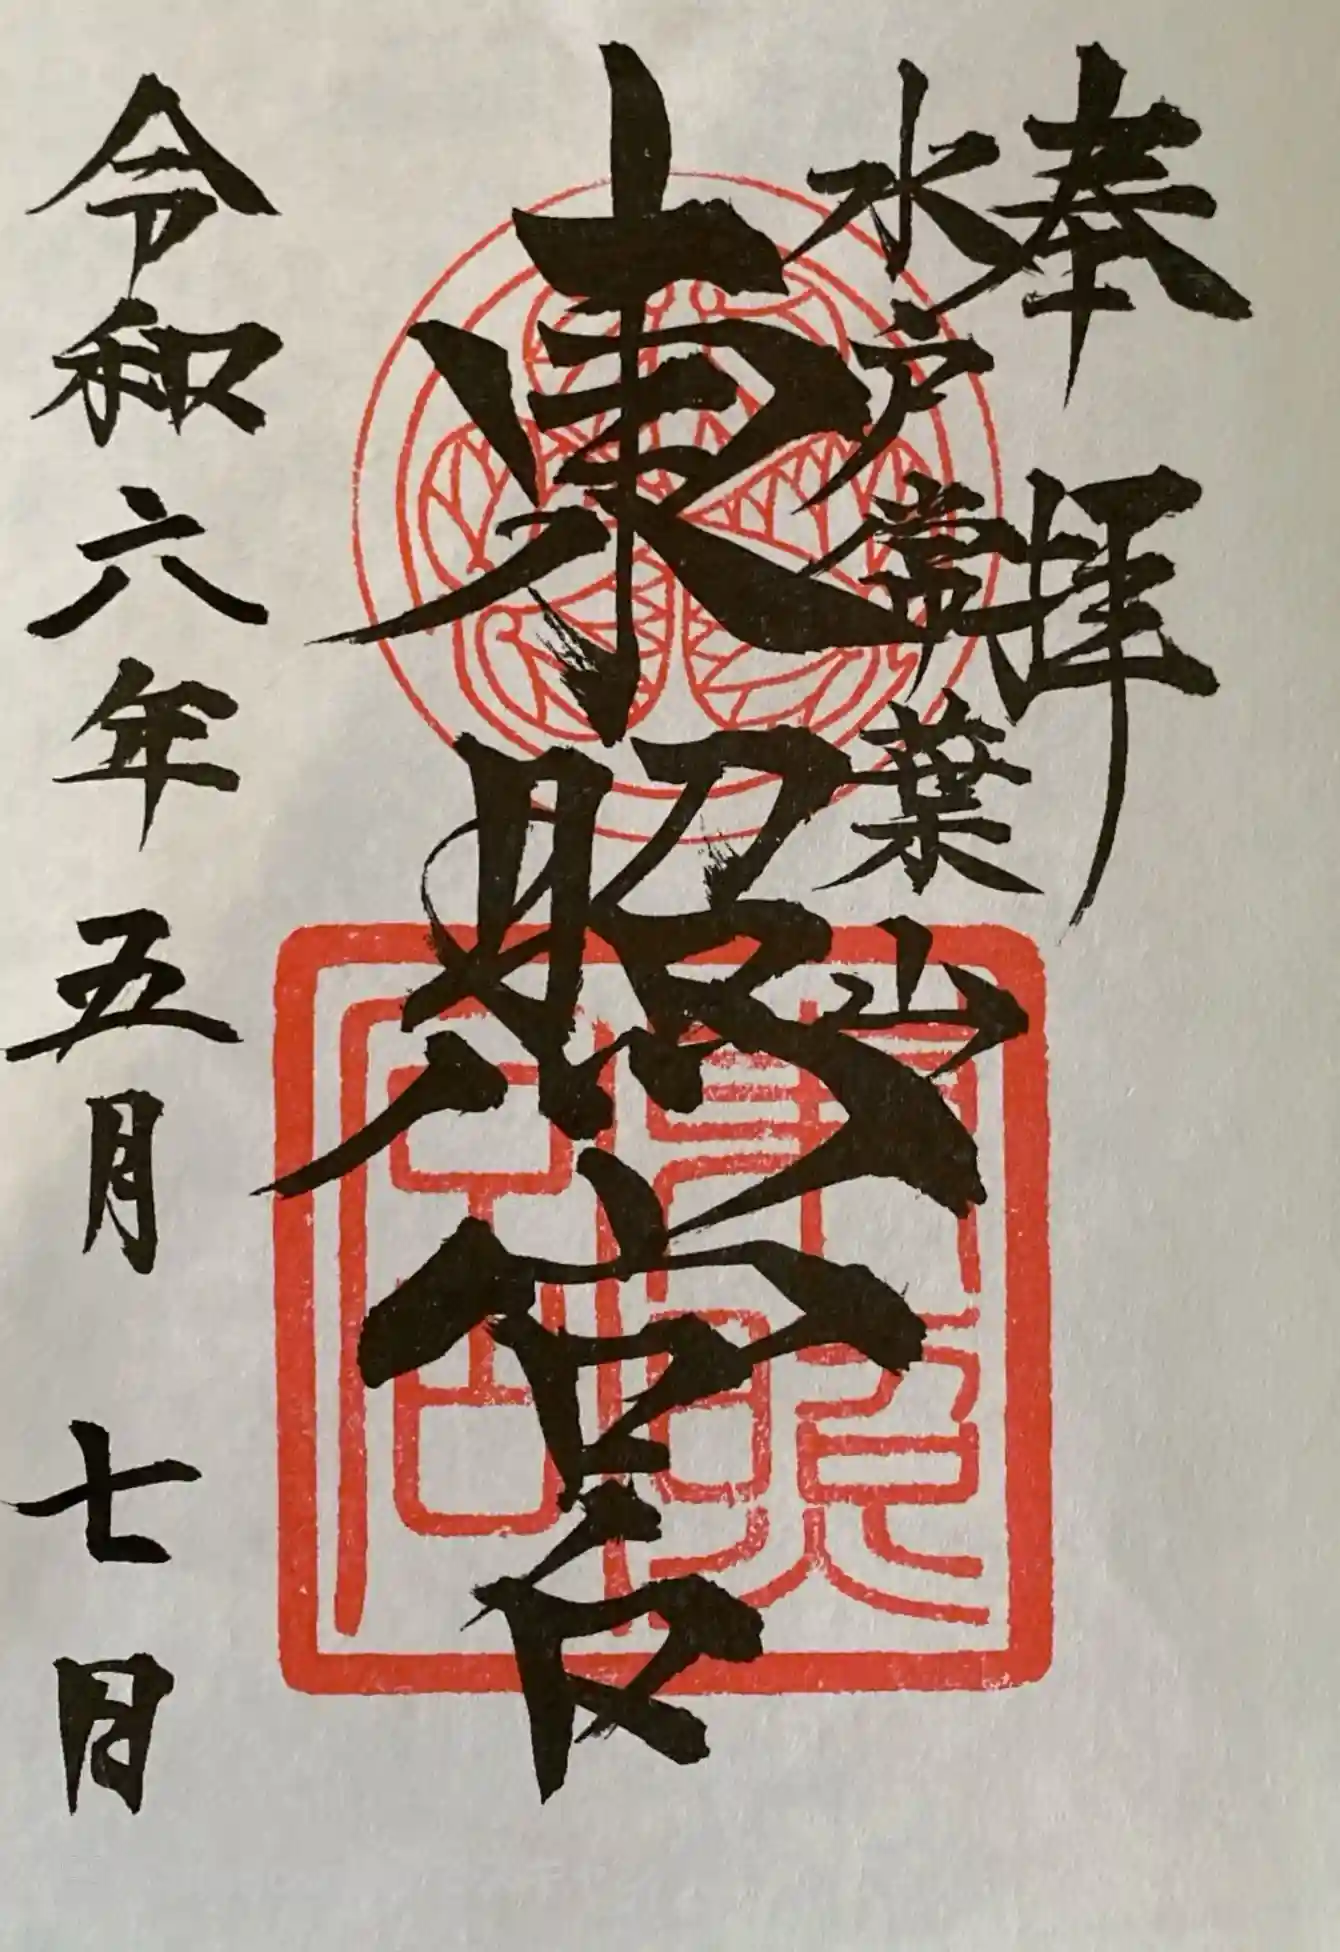 奉拝
水戸常葉山
東照宮
東照宮
令和六年五月七日